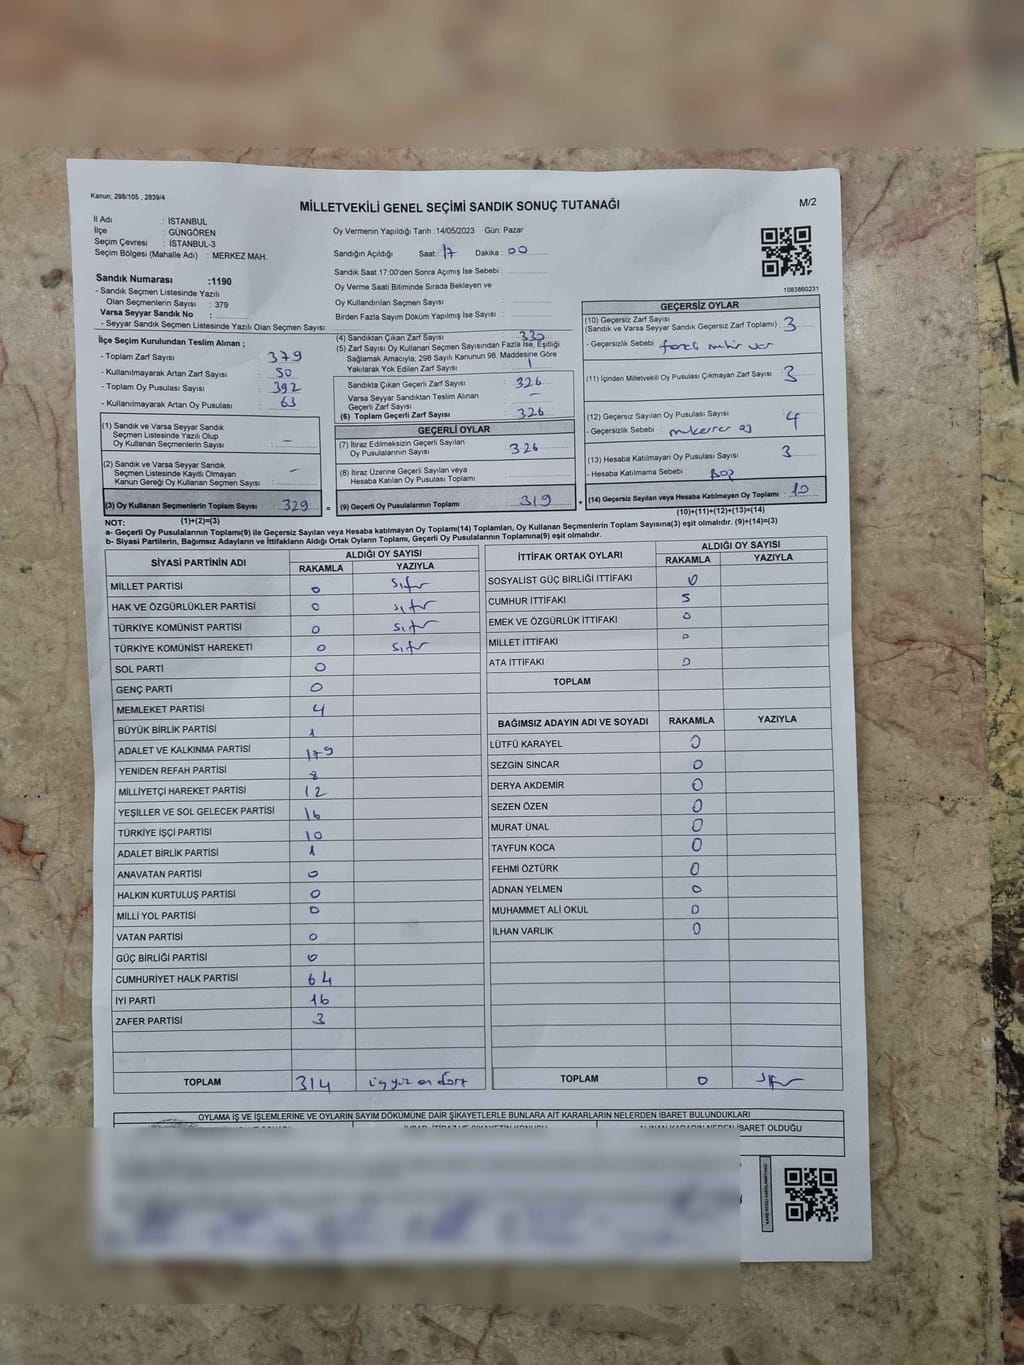 Kanun: 298/105 , 2839/4
MİLLETVEKİLİ GENEL SEÇİMİ SANDIK SONUÇ TUTANAĞI
M/2
İl Adı : İSTANBUL
İlçe : GÜNGÖREN
Seçim Çevresi : İSTANBUL-3
Seçim Bölgesi (Mahalle Adı) : MERKEZ MAH.
Oy Vermenin Yapıldığı Tarih :14/05/2023 Gün: Pazar
Sandığın Açıldığı Saat: 17 Dakika: 00
Sandık Saat 17:00'den Sonra Açımış İse Sebebi :
Oy Verme Saati Bitiminde Sırada Bekleyen ve
Oy Kullandırılan Seçmen Sayısı :
Birden Fazla Sayım Döküm Yapılmış İse Sayısı :
1083860231
Sandık Numarası :1190
- Sandık Seçmen Listesinde Yazılı
Olan Seçmenlerin Sayısı : 379
Varsa Seyyar Sandık No :
- Seyyar Sandık Seçmen Listesinde Yazılı Olan Seçmen Sayısı:
İlçe Seçim Kurulundan Teslim Alınan ;
- Toplam Zarf Sayısı : 379
- Kullanılmayarak Artan Zarf Sayısı : 50
- Toplam Oy Pusulası Sayısı : 392
- Kullanılmayarak Artan Oy Pusulası : 63
(1) Sandık ve Varsa Seyyar Sandık
Seçmen Listesinde Yazılı Olup
Oy Kullanan Seçmenlerin Sayısı : -
(2) Sandık ve Varsa Seyyar Sandık
Seçmen Listesinde Kayıtlı Olmayan
Kanun Gereği Oy Kullanan Seçmen Sayısı : -
(3) Oy Kullanan Seçmenlerin Toplam Sayısı : 329
(1)+(2)=(3)
(4) Sandıktan Çıkan Zarf Sayısı : 330
(5) Zarf Sayısı Oy Kullanan Seçmen Sayısından Fazla İse, Eşitliği
Sağlamak Amacıyla; 298 Sayılı Kanunun 98. Maddesine Göre
Yakılarak Yok Edilen Zarf Sayısı : 1
Sandıkta Çıkan Geçerli Zarf Sayısı : 326
Varsa Seyyar Sandıktan Teslim Alınan
Geçerli Zarf Sayısı : -
(6) Toplam Geçerli Zarf Sayısı : 326
GEÇERLİ OYLAR
(7) İtiraz Edilmeksizin Geçerli Sayılan
Oy Pusulasının Sayısı : 326
(8) İtiraz Üzerine Geçerli Sayılan veya
Hesaba Katılan Oy Pusulası Toplamı :
= (9) Geçerli Oy Pusulalarının Toplamı : 319
GEÇERSİZ OYLAR
(10) Geçersiz Zarf Sayısı
(Sandık ve Varsa Seyyar Sandık Geçersiz Zarf Toplamı) : 3
- Geçersizlik Sebebi : fazla mühür var
(11) İçinden Milletvekili Oy Pusulası Çıkmayan Zarf Sayısı : 3
(12) Geçersiz Sayılan Oy Pusulası Sayısı : 4
- Geçersizlik Sebebi : mükerrer oy
(13) Hesaba Katılmayan Oy Pusulası Sayısı : 3
- Hesaba Katılmama Sebebi : Boş
+ (14) Geçersiz Sayılan veya Hesaba Katılmayan Oy Toplamı : 10
(10)+(11)+(12)+(13)=(14)
NOT:
a- Geçerli Oy Pusulalarının Toplamı(9) ile Geçersiz Sayılan veya Hesaba katılmayan Oy Toplamı(14) Toplamları, Oy Kullanan Seçmenlerin Toplam Sayısına(3) eşit olmalıdır. (9)+(14)=(3)
b- Siyasi Partilerin, Bağımsız Adayların ve İttifakların Aldığı Ortak Oyların Toplamı, Geçerli Oy Pusulalarının Toplamına(9) eşit olmalıdır.
SİYASİ PARTİNİN ADI ALDIĞI OY SAYISI
RAKAMLA YAZIYLA
MİLLET PARTİSİ 0 sıfır
HAK VE ÖZGÜRLÜKLER PARTİSİ 0 sıfır
TÜRKİYE KOMÜNİST PARTİSİ 0 sıfır
TÜRKİYE KOMÜNİST HAREKETİ 0 sıfır
SOL PARTİ 0
GENÇ PARTİ 0
MEMLEKET PARTİSİ 4
BÜYÜK BİRLİK PARTİSİ 1
ADALET VE KALKINMA PARTİSİ 179
YENİDEN REFAH PARTİSİ 8
MİLLİYETÇİ HAREKET PARTİSİ 12
YEŞİLLER VE SOL GELECEK PARTİSİ 16
TÜRKİYE İŞÇİ PARTİSİ 10
ADALET BİRLİK PARTİSİ 1
ANAVATAN PARTİSİ 0
HALKIN KURTULUŞ PARTİSİ 0
MİLLİ YOL PARTİSİ 0
VATAN PARTİSİ 0
GÜÇ BİRLİĞİ PARTİSİ 0
CUMHURİYET HALK PARTİSİ 64
İYİ PARTİ 16
ZAFER PARTİSİ 3
TOPLAM 314 üçyüz on dört
İTTİFAK ORTAK OYLARI ALDIĞI OY SAYISI
RAKAMLA YAZIYLA
SOSYALİST GÜÇ BİRLİĞİ İTTİFAKI 0
CUMHUR İTTİFAKI 5
EMEK VE ÖZGÜRLÜK İTTİFAKI 0
MİLLET İTTİFAKI 0
ATA İTTİFAKI 0
TOPLAM
BAĞIMSIZ ADAYIN ADI VE SOYADI RAKAMLA YAZIYLA
LÜTFÜ KARAYEL 0
SEZGİN SİNCAR 0
DERYA AKDEMİR 0
SEZEN ÖZEN 0
MURAT ÜNAL 0
TAYFUN KOCA 0
FEHMİ ÖZTÜRK 0
ADNAN YELMEN 0
MUHAMMET ALİ OKUL 0
İLHAN VARLIK 0
TOPLAM 0 sıfır
OYLAMA İŞ VE İŞLEMLERİNE VE OYLARIN SAYIM DÖKÜMÜNE DAİR ŞİKAYETLERLE BUNLARA AİT KARARLARIN NELERDEN İBARET BULUNDUKLARI
İBARET OLDUĞU